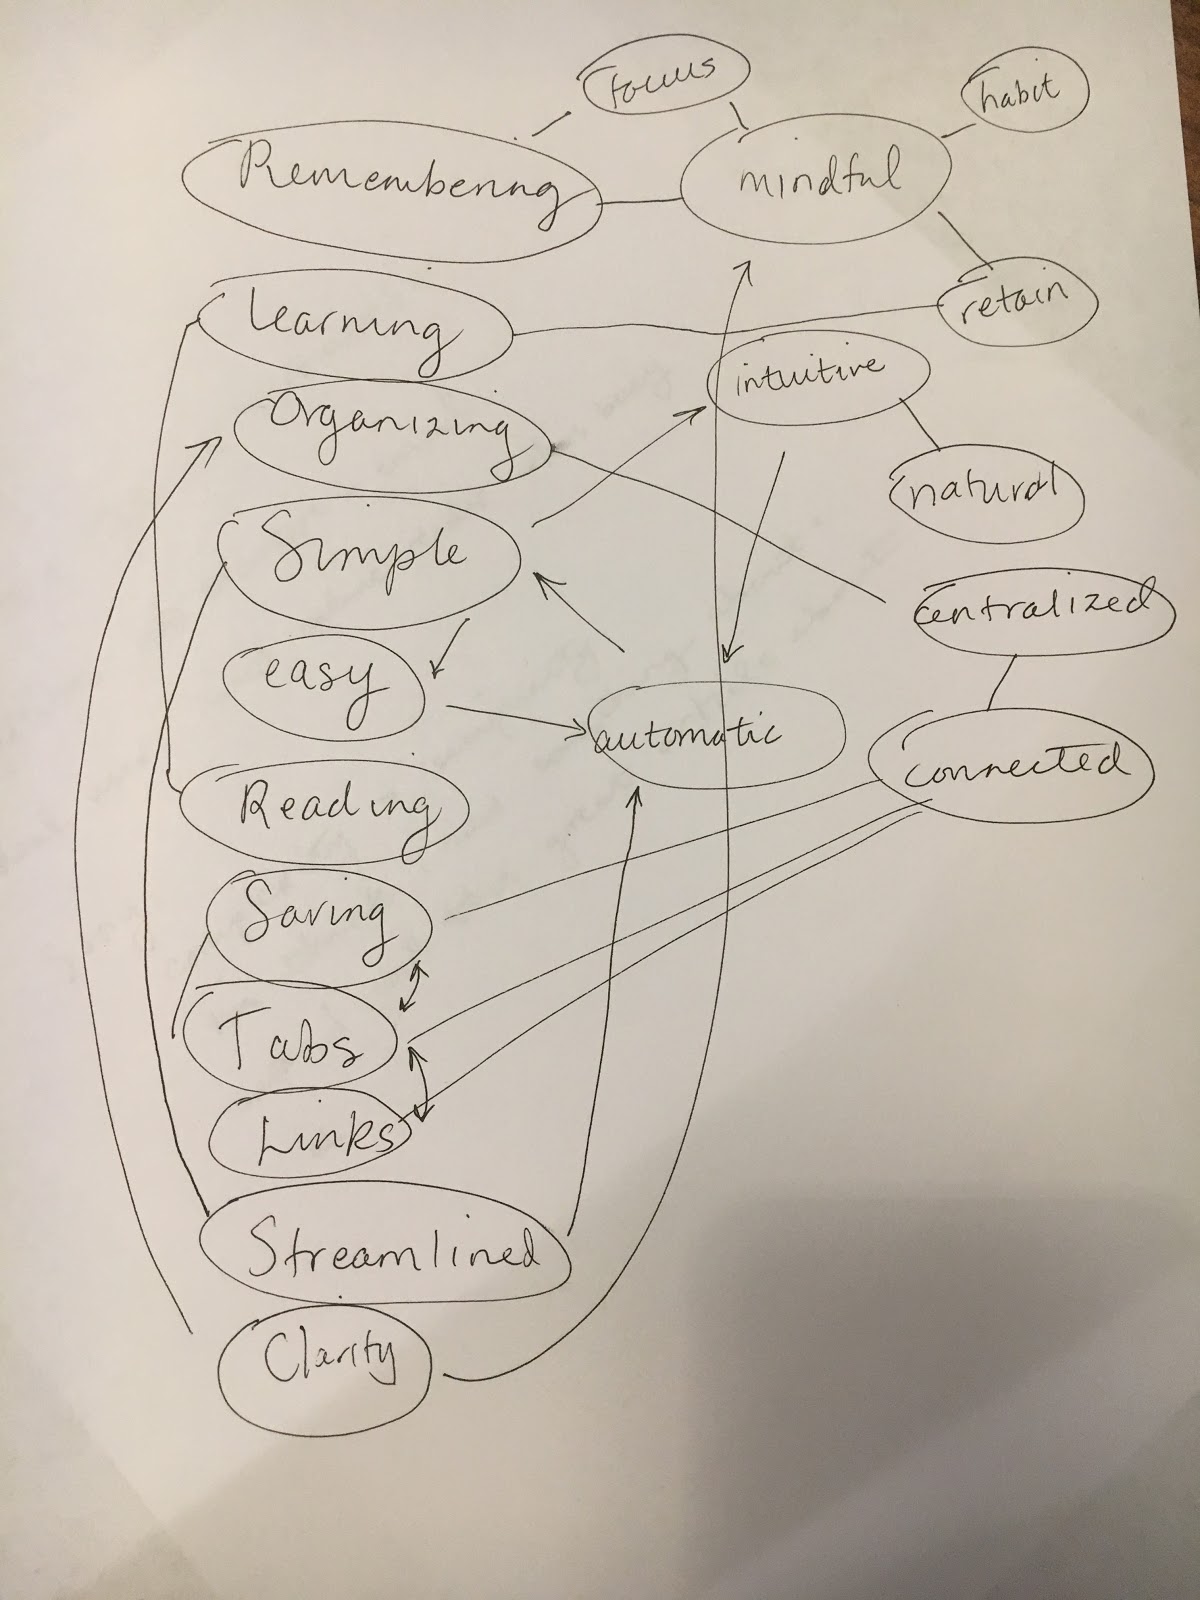 focus
habit
Remembering
mindful
Learning
retain
intuitive
Organizing
natural
Simple
centralized
easy
automatic
connected
Reading
Saving
Tabs
Links
Streamlined
Clarity